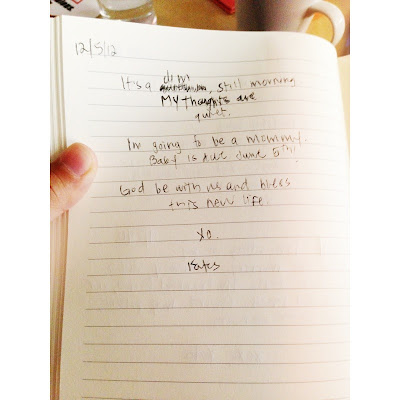 12/5/12
It's a dim, still morning
My thoughts are
quiet.
I'm going to be a mommy.
Baby is due June 5th!
God be with us and bless
this new life.
XO.
Kates